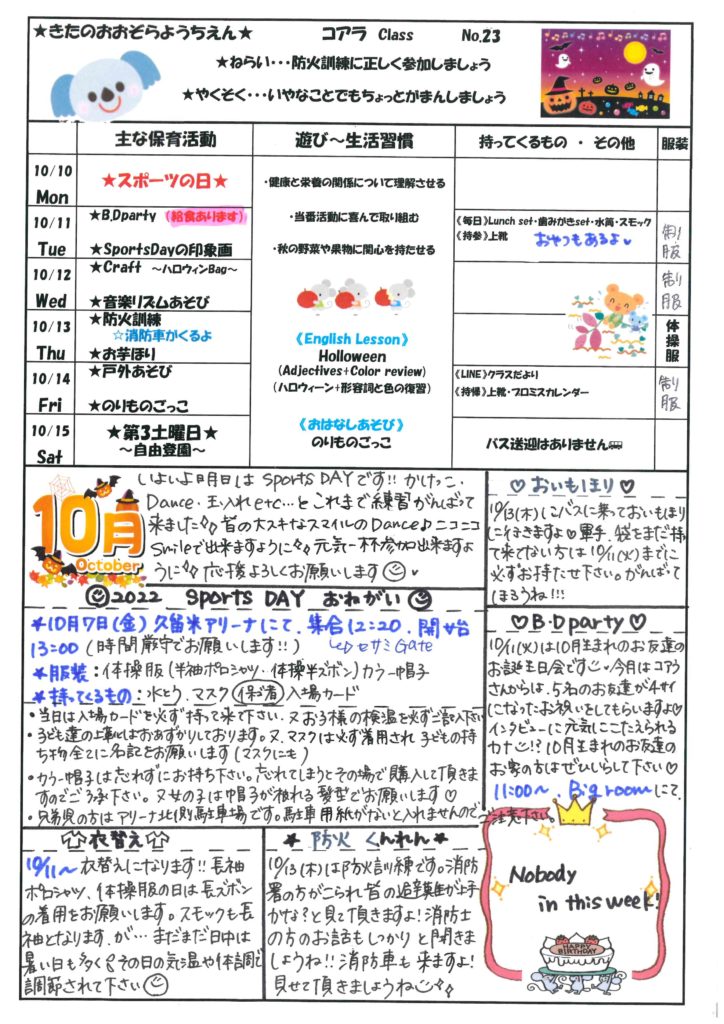 ★きたのおおぞらようちえん★ コアラ Class No.23
★ねらい・・・防火訓練に正しく参加しましょう
★やくそく・・・いやなことでもちょっとがまんしましょう
主な保育活動 遊び～生活習慣 持ってくるもの ・ その他 服装
10/10 Mon
★スポーツの日★
10/11 Tue
★B.Dparty (給食あります)
★SportsDayの印象画
10/12 Wed
★Craft ～ハロウィンBag～
★音楽リズムあそび
10/13 Thu
★防火訓練
☆消防車がくるよ
★お芋ほり
10/14 Fri
★戸外あそび
★のりものごっこ
10/15 Sat
★第3土曜日★
～自由登園～
・健康と栄養の関係について理解させる
・当番活動に喜んで取り組む
・秋の野菜や果物に関心を持たせる
《English Lesson》
Holloween
(Adjectives+Color review)
(ハロウィーン+形容詞と色の復習)
《おはなしあそび》
のりものごっこ
《毎日》Lunch set・歯みがきset・水筒・スモック
《持参》上靴 おやつもあるよ
《LINE》クラスだより
《持帰》上靴・プロミスカレンダー
バス送迎はありません
制服
制服
体操服
制服
10月
October
いよいよ明日は Sports DAYです!! かけっこ、
Dance・玉入れ etc…と これまで練習がんばって
来ました 皆の大スキなスマイルのDance♪ニコニコ
Smileで出来ますように 元気一杯参加出来ますよ
うに 応援よろしくお願いします
2022 Sports DAY おねがい
★10月7日(金) 久留米アリーナにて、集合12:20、開始
13:00 (時間厳守でお願いします!!) Gate
★服装:体操服(半袖ポロシャツ・体操半ズボン)カラー帽子
★持ってくるもの:水とう、マスク 保護者 入場カード
・当日は入場カードを必ず持って来て下さい、又お子様の検温を必ずご記入下さい
・子ども達の上靴はおあずかりしております。又、マスクは必ず着用され 子どもの持
ち物全てに名記をお願いします(マスクにも)
・カラー帽子は忘れずにお持ち下さい。忘れてしまうとその場で購入して頂きま
すのでご了承下さい。又女の子は帽子が被れる髪型でお願いします♡
・兄弟児の方はアリーナ北側駐車場です。駐車用紙がないと入れませんので
ご注意下さい。
♡おいもほり♡
10/13(木)にバスに乗っておいもほり
に行ってきますよ♡軍手、袋をまだ持っ
て来てない方は10/11(火)までに
必ずお持たせ下さい。がんばって
ほろうね!!!
♡B・Dparty♡
10/11(火)は10月生まれのお友達の
お誕生日会です 今月はコアラ
さんからは、5名のお友達が4才
になったお祝いをしてもらいますよ♡
インタビューに元気にこたえられる
カナ!? 10月生まれのお友達の
お家の方はぜひいらして下さい♡
11:00～、Big roomにて、
衣替え
10/11～衣替えになります!! 長袖
ポロシャツ、体操服の日は長ズボン
の着用をお願いします。スモックも長
袖となります、が…まだまだ日中は
暑い日も多く その日の気温や体調で
調節されて下さい
★ 防火 くんれん ★
10/13(木)は防火訓練です。消防
署の方がこられ皆の避難が上手
かな?と見て頂きますよ!消防士
の方のお話もしっかりと聞きま
しょうね!! 消防車も来ますよ!
見せて頂きましょうね
Nobody
in this week!
HAPPY
BIRTHDAY